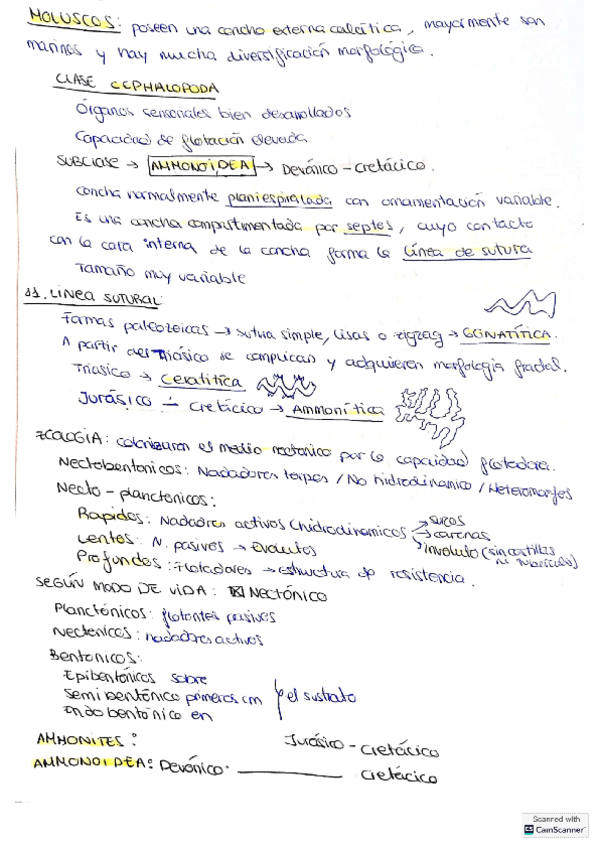 MOLUSCOS: poseen una concha externa calcítica, mayormente son
marinos y hay mucha diversificación morfológica.
CLASE CEPHALOPODA
Órganos sensoriales bien desarrollados
Capacidad de flotación elevada
SUBClase → AMMONOIDEA → Devónico - Cretácico.
Concha normalmente planiespiralada con ornamentación variable.
Es una concha compartimentada por septos, cuyo contacto
con la cara interna de la concha forma la línea de sutura
Tamaño muy variable
11. LÍNEA SUTURAL
Formas paleozoicas → sutura simple, lisas o zigzag → GONIATÍTICA.
A partir del Triásico se complican y adquieren morfología fractal.
Triásico → Ceratítica
Jurásico - Cretácico → Ammonítica
ECOLOGÍA: colonizaron el medio nectónico por la capacidad flotadora.
Nectobentonicos: Nadadores torpes / No hidrodinámico / Heteromorfos
Necto-planctonicos:
Rápidos: Nadadores activos (hidrodinamicos → surcos
→ carenas
→ involuto (sin costillas ni tubérculo)
Lentos: N. pasivos → Evolutos
Profundos: Flotadores → estructura de resistencia.
SEGÚN MODO DE VIDA: NECTÓNICO
Planctónicos: flotantes pasivos
Nectonicos: nadadores activos
Bentonicos:
Epibentónicos sobre
Semibentónico primeros cm } el sustrato
Endobentónico en
AMMONITES: Jurásico - Cretácico
AMMONOIDEA: Devónico. ______ Cretácico
Scanned with
CS CamScanner